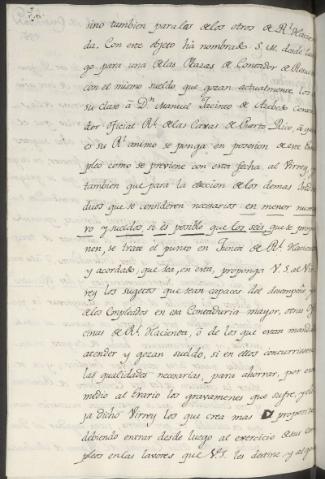 sino tambien para las de los otros de R.l Hacien
da. Con este objeto há nombrado S. M. desde lue
go para una de las Plazas de Contador de
con el mismo sueldo que gozan actualmente los de
su clase á D.n Manuel Jacinto de Conta
dor oficial R.l de las Caxas de Puerto Rico, á q.n
es su R.l animo se ponga en posesion de este Em
pleo como se previene con esta fecha al Virrey y
tambien que para la eleccion de los demas Indivi
duos que se consideren necesarios en menor nume
ro y sueldos, si es posible que los seis que se propo
nen, se trate el punto en Junta de R.l Hacienda
y acordado, que sea, en esta, proponga V.S. al Vir
rey los sugetos que sean capaces del desempeño y
de los Empleados en esa Contaduria mayor, otras ofi
cinas de R.l Hacienda, ó de los que estan mandados
atender y gozan sueldo, si en ellos concurriesen
las qualidades necesarias, para ahorrar, por este
medio al Erario los gravamenes que sufre, y eli
ja dicho Virrey los que crea mas proporcionados
debiendo entrar desde luego al exercicio de sus em
pleos en las labores que V.S. les destine y al